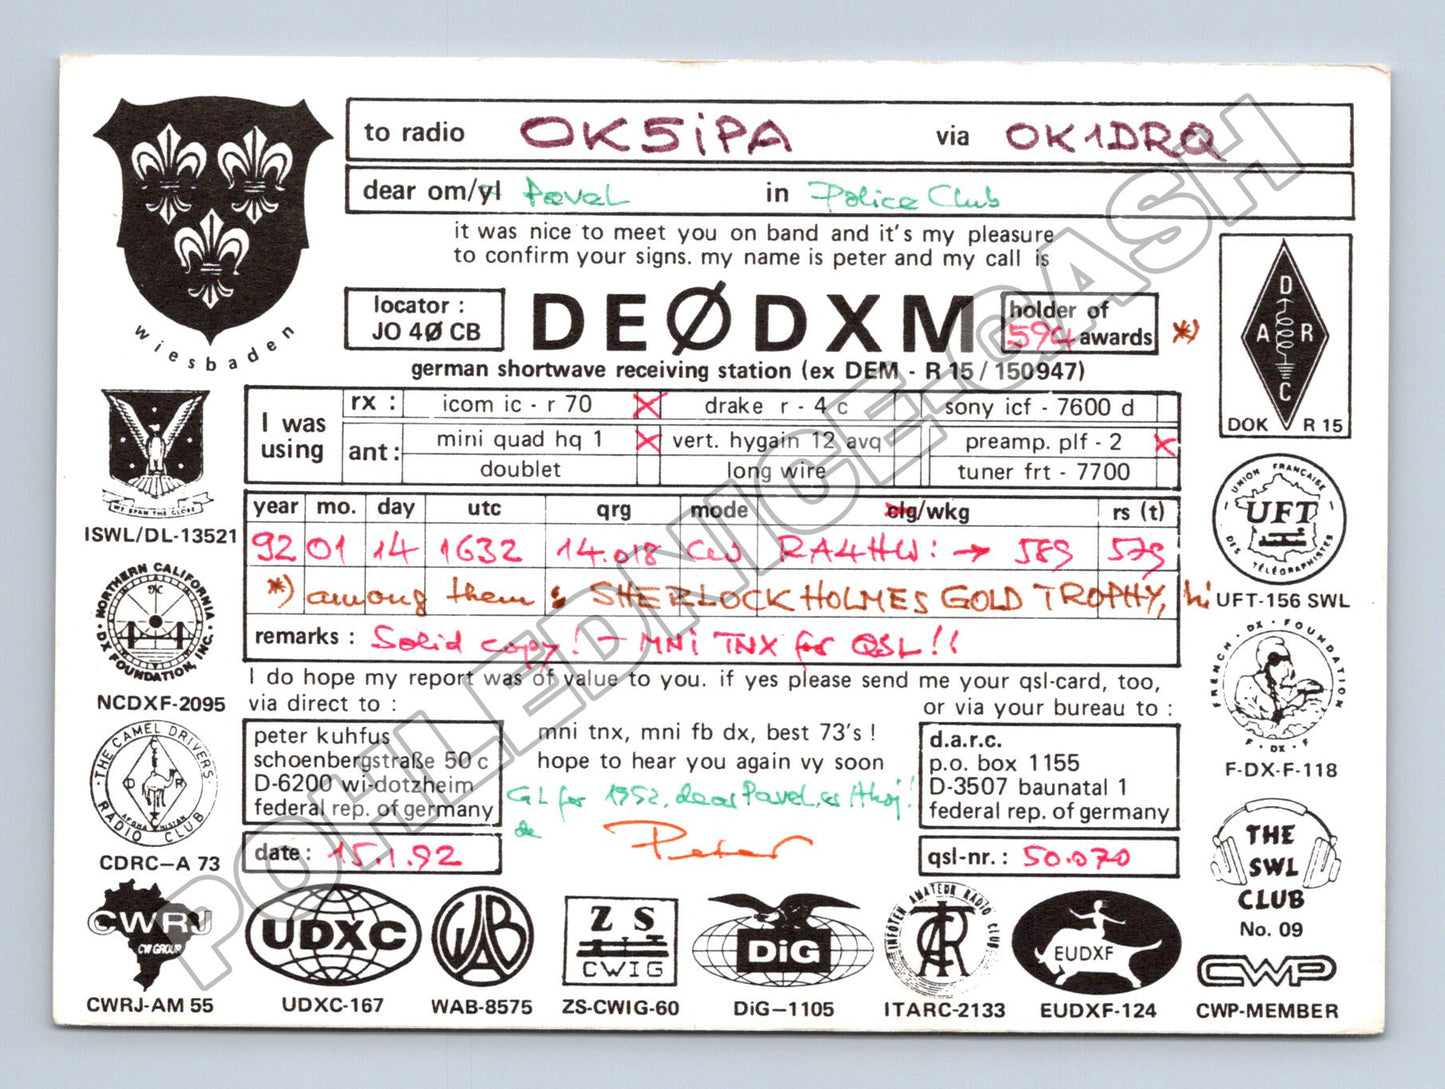 to radio OK5iPA via OK1DRQ
dear om/yl Pavel in Police Club
it was nice to meet you on band and it's my pleasure
to confirm your signs. my name is peter and my call is
wiesbaden
locator :
JO 4Ø CB
DEØDXM
holder of
594 awards *)
german shortwave receiving station (ex DEM - R 15 / 150947)
D
A R
C
DOK R 15
I was
using
rx : icom ic - r 70 X drake r - 4 c sony icf - 7600 d
ant : mini quad hq 1 X vert. hygain 12 avq preamp. plf - 2 X
doublet long wire tuner frt - 7700
WE SPAN THE GLOBE
ISWL/DL-13521
year mo. day utc qrg mode clg/wkg rs (t)
92 01 14 1632 14.018 CW RA4HW: → 589 579
*) among them : SHERLOCK HOLMES GOLD TROPHY, hi
remarks : Solid copy! - MNi TNX for QSL!!
UNION FRANÇAISE
UFT
DES TÉLÉGRAPHISTES
UFT-156 SWL
NORTHERN CALIFORNIA
DX FOUNDATION, INC.
NCDXF-2095
I do hope my report was of value to you. if yes please send me your qsl-card, too,
via direct to : or via your bureau to :
FRENCH · DX · FOUNDATION
F · DX · F
F-DX-F-118
peter kuhfus
schoenbergstraße 50 c
D-6200 wi-dotzheim
federal rep. of germany
mni tnx, mni fb dx, best 73's !
hope to hear you again vy soon
GL for 1992, dear Pavel, es Ahoj!
de Peter
d.a.r.c.
p.o. box 1155
D-3507 baunatal 1
federal rep. of germany
THE CAMEL DRIVERS
RADIO CLUB
CDRC-A 73
date : 15.1.92
qsl-nr. : 50.070
THE
SWL
CLUB
No. 09
CWRJ
CW GROUP
CWRJ-AM 55
UDXC
UDXC-167
WAB
WAB-8575
ZS
CWIG
ZS-CWIG-60
DiG
DiG-1105
INFOTEN AMATEUR RADIO CLUB
ITARC-2133
EUDXF
EUDXF-124
CWP
CWP-MEMBER
POHLEDNICE-CASH